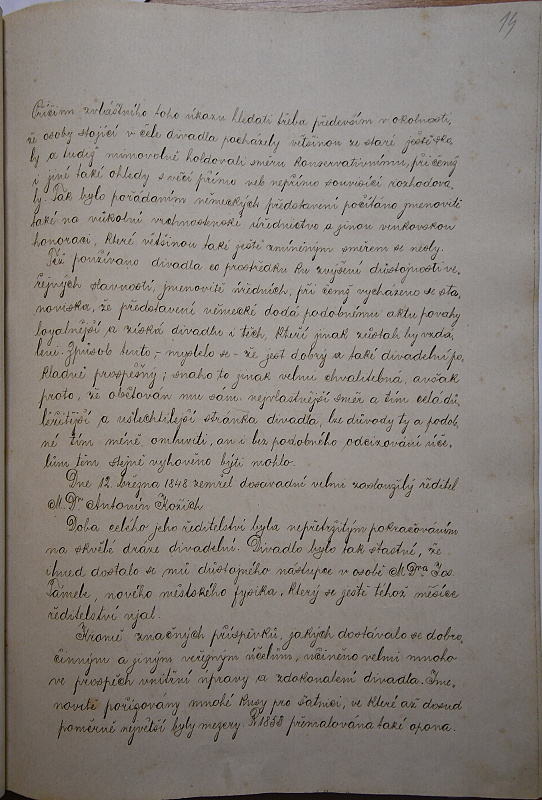 14
Příčinu zvláštního toho úkazu hledati třeba především v okolnosti,
že osoby stojící v čele divadla pocházely většinou ze staré ještě ško,
ly a tudíž mimovolně holdovali směru konservativnímu, při čemž
i jiné také ohledy s věcí přímo neb nepřímo souvisící rozhodova,
ly. Tak bylo pořádáním německých představení počítáno jmenovitě
také na vůkolní vrchnostenské úřednictvo a jinou venkovskou
honoraci, které většinou také ještě zmíněným směrem se nesly.
Též používáno divadla co prostředku ku zvýšení důstojnosti ve,
řejných slavností, jmenovitě úředních, při čemž vycházeno se sta,
noviska, že představení německé dodá podobnému aktu povahy
loyalnější a získá divadlu i těch, kteří jinak zůstali by vzdá,
leni. Způsob tento, - myslelo se - že jest dobrý a také divadelní po,
kladně prospěšný; snaha to jinak velmi chvalitebná, avšak
proto, že obětován mu sám nejvlastnější směr a tím celá dů,
ležitější a ušlechtilejší stránka divadla, lze důvody ty a podob,
né tím méně omluviti, an i bez podobného odcizování úče,
lům těm stejně vyhověno býti mohlo.
Dne 12. března 1848 zemřel dosavadní velmi zasloužilý ředitel
M. Dr. Antonín
Doba celého jeho ředitelství byla nepřetržitým pokračováním
na skvělé dráze divadelní. Divadlo bylo tak šťastné, že
ihned dostalo se mů důstojného nástupce v osobě M Dra Jos.
nového městského fysika, který se ještě téhož měsíce
ředitelství ujal.
Kromě značných příspěvků, jakých dostávalo se dobro,
činným a jiným veřejným účelům, učiněno velmi mnoho
ve prospěch vnitřní úpravy a zdokonalení divadla. Jme,
novitě pořizovány mnohé kusy pro šatnici, ve které až dosud
poměrně největší byly mezery. R 1853 přemalována také opona.